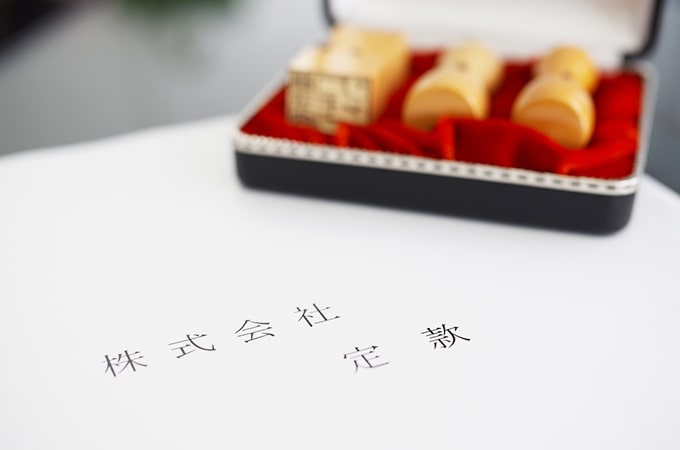 株式会社
定款